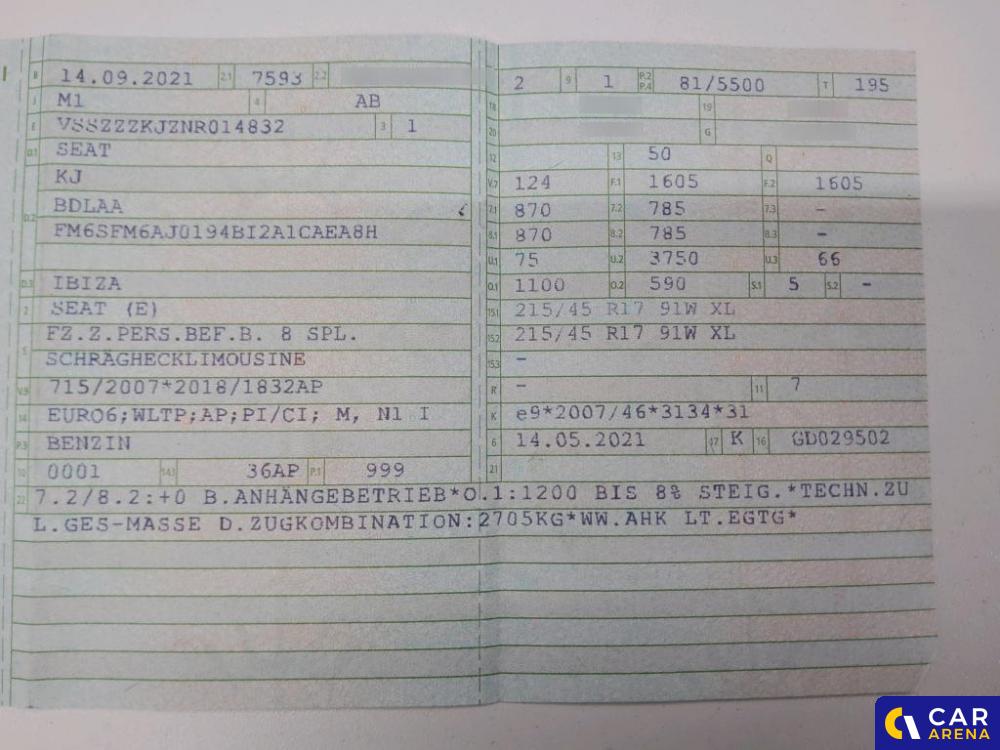 B 14.09.2021 2.1 7593 2.2
J M1 4 AB
E VSSZZZKJZNR014832 3 1
D.1 SEAT
KJ
D.2 BDLAA
FM6SFM6AJ0194BI2A1CAEA8H
D.3 IBIZA
2 SEAT (E)
FZ.Z.PERS.BEF.B. 8 SPL.
5 SCHRAGHECKLIMOUSINE
V.9 715/2007*2018/1832AP
14 EURO6;WLTP;AP;PI/CI; M, N1 I
P.3 BENZIN
10 0001 14.1 36AP P.1 999
2 9 1 P.2 P.4 81/5500 T 195
18 19
20 G
12 13 50 Q
V.7 124 F.1 1605 F.2 1605
7.1 870 7.2 785 7.3 -
8.1 870 8.2 785 8.3 -
U.1 75 U.2 3750 U.3 66
O.1 1100 O.2 590 S.1 5 S.2 -
15.1 215/45 R17 91W XL
15.2 215/45 R17 91W XL
15.3 -
R - 11 7
K e9*2007/46*3134*31
6 14.05.2021 17 K 16 GD029502
21
22 7.2/8.2:+0 B.ANHÄNGEBETRIEB*O.1:1200 BIS 8% STEIG.*TECHN.ZU
L.GES-MASSE D.ZUGKOMBINATION:2705KG*WW.AHK LT.EGTG*
CAR
ARENA